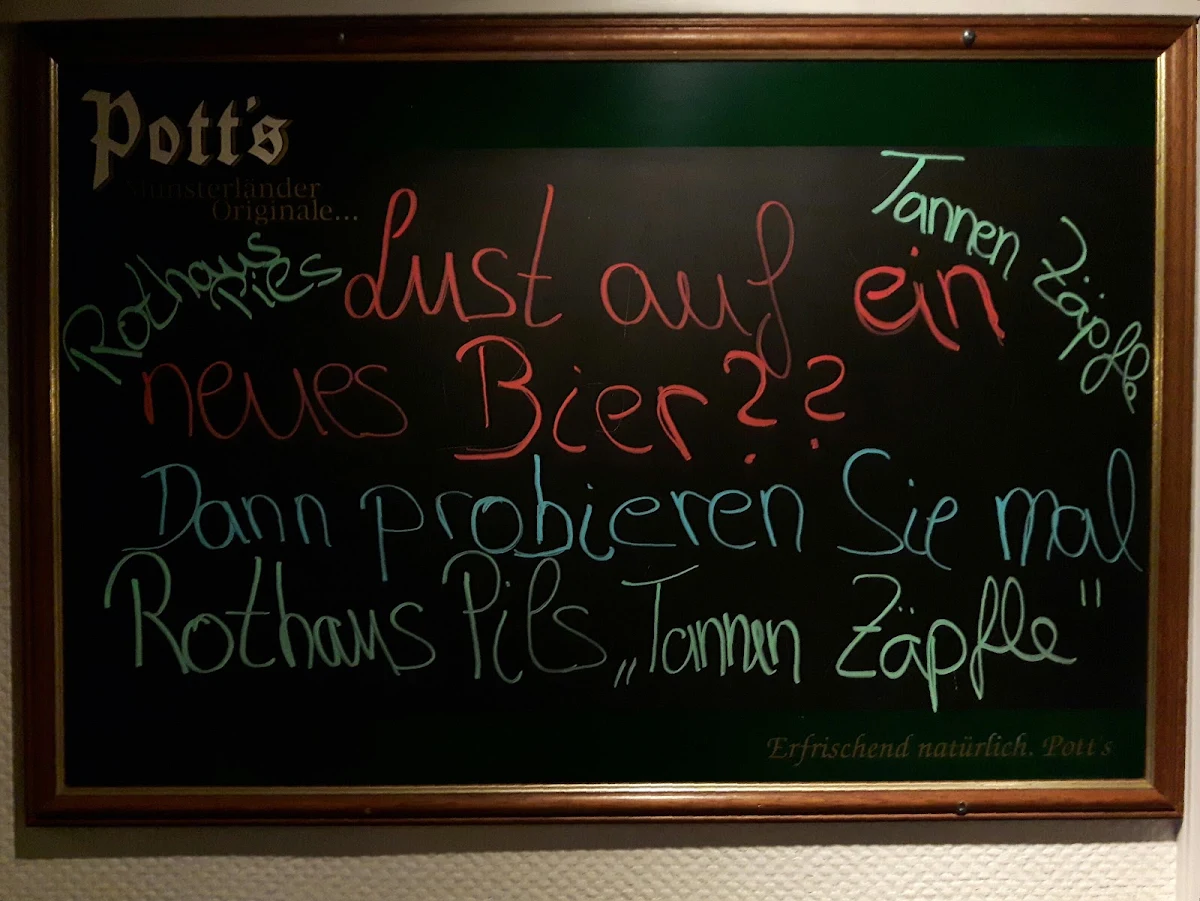 Pott's
Münsterländer
Originale...
Tannen Zäpfle
Rothaus
Pies
Lust auf ein
neues Bier??
Dann probieren Sie mal
Rothaus Pils „Tannen Zäpfle"
Erfrischend natürlich. Pott's